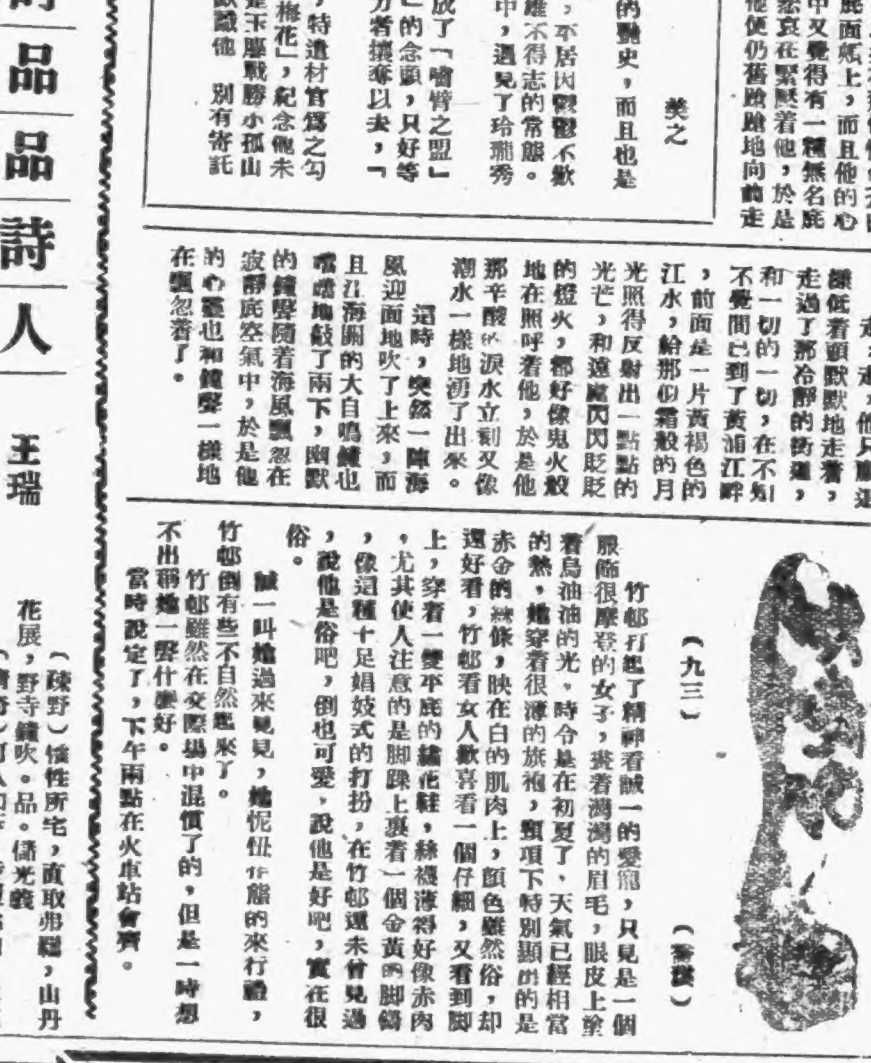 底面龐上，而且他的心
中又覺得有一種無名底
悲哀在緊壓着他，於是
他便仍舊蹌蹌地向前走
美之
的艷史，而且也是
，平居因鬱鬱不歡
雖不得志的常態。
中，遇見了玲瓏秀
成了「嚙臂之盟」
」的念頭，只好等
力者攘奪以去，「
，特遣材官爲之勾
梅花」，紀念他未
玉驄戰勝小孤山
獻醜他　別有寄託
走，走，他只顧這
樣低着頭默默地走着，
走過了那冷靜的街道，
和一切的一切，在不知
不覺間已到了黃浦江畔
，前面是一片黃褐色的
江水，給那似霜般的月
光照得反射出一點點的
光芒，和遠處閃閃眨眨
的燈火，都好像鬼火般
地在照呼着他，於是他
那辛酸的淚水立刻又像
潮水一樣地湧了出來。
這時，突然一陣海
風迎面地吹了上來，而
且江海關的大自鳴鐘也
噹噹地敲了兩下，幽默
的鐘聲隨着海風飄忽在
寂靜底空氣中，於是他
的心靈也和鐘聲一樣地
在飄忽着了。
（九三）
竹邨打起了精神看誠一的愛寵，只見是一個
服飾很摩登的女子，裝着灣灣的眉毛，眼皮上塗
着烏油油的光，時令是在初夏了，天氣已經相當
的熱，她穿着很薄的旗袍，頸項下特別顯出的是
赤金的練條，映在白的肌肉上，顏色雖然俗，却
還好看，竹邨看女人歡喜看一個仔細，又看到脚
上，穿着一雙平底的繡花鞋，絲襪薄得好像赤肉
，尤其使人注意的是脚踝上裹着一個金黃的脚鐲
，像這種十足娼妓式的打扮，在竹邨還未曾見過
，說他是俗吧，倒也可愛，說他是好吧，實在很
俗。
誠一叫她過來見見，她忸怩作態的來行禮，
竹邨倒有些不自然起來了。
竹邨雖然在交際場中混慣了的，但是一時想
不出稱她一聲什麼好。
當時說定了，下午兩點在火車站會齊。
品品詩人
王瑞
（疎野）惟性所宅，直取弗羈，山丹
花展，野寺鐘吹。品。儲光羲